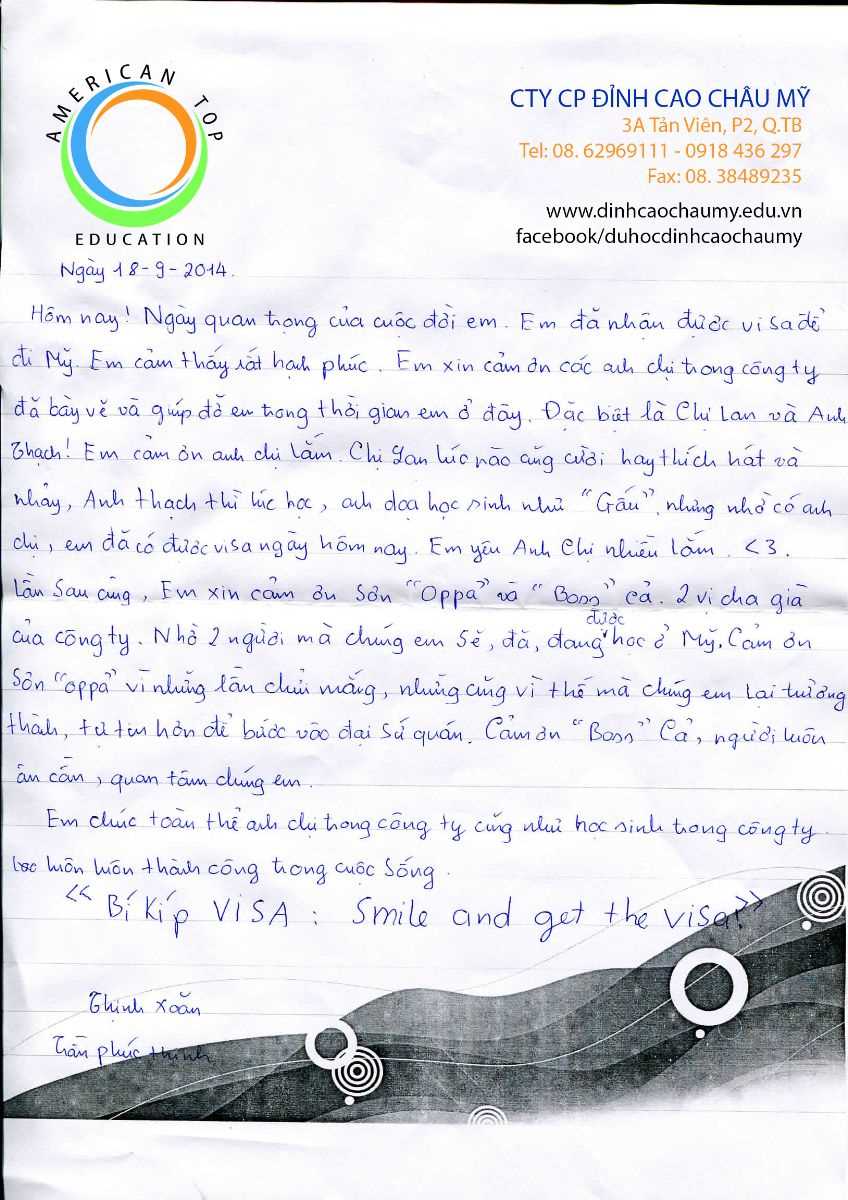 AMERICAN TOP
EDUCATION
CTY CP ĐỈNH CAO CHÂU MỸ
3A Tản Viên, P2, Q.TB
Tel: 08. 62969111 - 0918 436 297
Fax: 08. 38489235
www.dinhcaochaumy.edu.vn
facebook/duhocdinhcaochaumy
Ngày 18-9-2014.
Hôm nay! Ngày quan trọng của cuộc đời em. Em đã nhận được visa để
đi Mỹ. Em cảm thấy rất hạnh phúc. Em xin cảm ơn các anh chị trong công ty
đã bày vẽ và giúp đỡ em trong thời gian em ở đây. Đặc biệt là Chị Lan và Anh
Thạch! Em cảm ơn anh chị lắm. Chị Lan lúc nào cũng cười hay thích hát và
nhảy, Anh thạch thì lúc học, anh dọa học sinh như "Gấu", nhưng nhờ có anh
chị, em đã có được visa ngày hôm nay. Em yêu Anh Chị nhiều lắm. <3.
Lần sau cùng, Em xin cảm ơn Sơn "Oppa" và "Boss" cả. 2 vị cha già
của công ty. Nhờ 2 người mà chúng em sẽ, đã, đang được học ở Mỹ. Cảm ơn
Sơn "oppa" vì những lần chửi mắng, nhưng cũng vì thế mà chúng em lại trưởng
thành, tự tin hơn để bước vào đại sứ quán. Cảm ơn "Boss" Cả, người luôn
ân cần, quan tâm chúng em.
Em chúc toàn thể anh chị trong công ty cũng như học sinh trong công ty
luôn luôn thành công trong cuộc sống.
<< Bí Kíp VISA : Smile and get the visa! >>
Thịnh Xoăn
Trần phúc thịnh